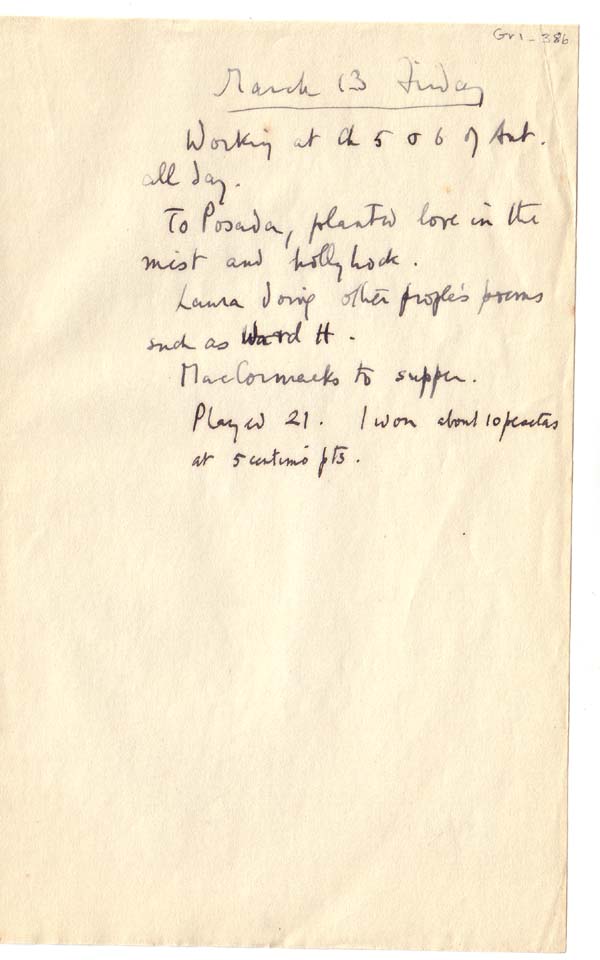 Gr1-386
March 13 Friday
Working at Ch 5 & 6 of Ant.
all day.
To Posada, planted love in the
mist and hollyhock.
Laura doing other people's poems
such as Ward H.
MacCormacks to supper.
Played 21. I won about 10 pesetas
at 5 centimo pts.